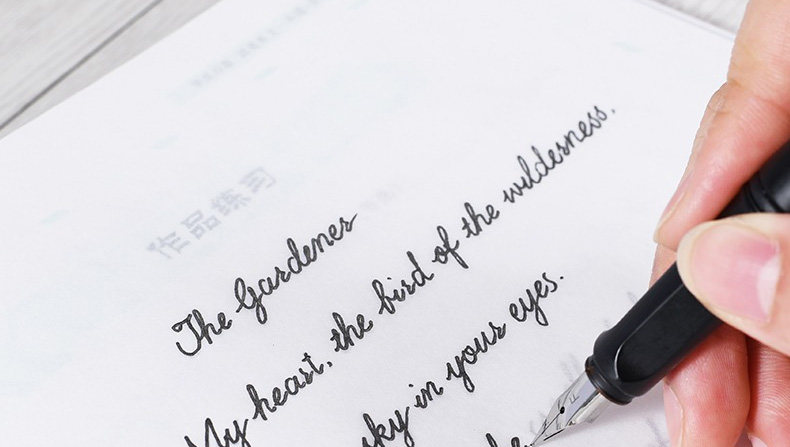 The Gardener
My heart, the bird of the wilderness.
sky in your eyes.